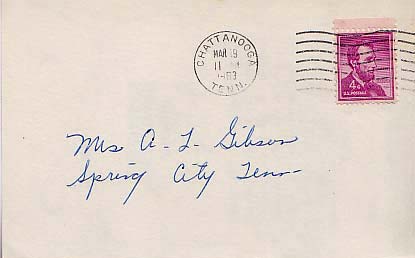 CHATTANOOGA
MAR 19
11
1963
TENN.
4¢
U.S. POSTAGE
Mrs A - L Gibson
Spring City Tenn-